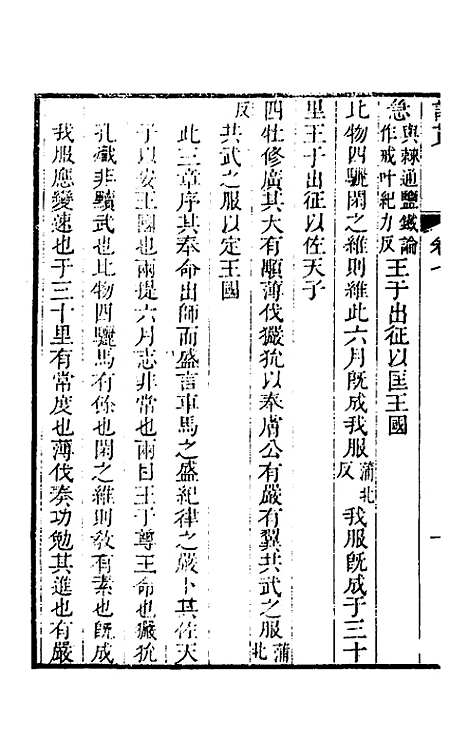 急與棘通鹽鐵論作戒叶紀力反王于出征以匡王國
比物四驪閑之維則維此六月既成我服蒲北反我服既成于三十
里王于出征以佐天子
四牡修廣其大有顒薄伐玁狁以奏膚公有嚴有翼共武之服蒲北
反共武之服以定王國
此三章序其奉命出師而盛言車馬之盛紀律之嚴卜其佐天
子以安王國也兩提六月志非常也兩曰王于尊王命也玁狁
孔熾非黷武也比物四驪馬有餘也閑之維則敎有素也旣成
我服應變速也于三十里有常度也薄伐奏功勉其進也有嚴